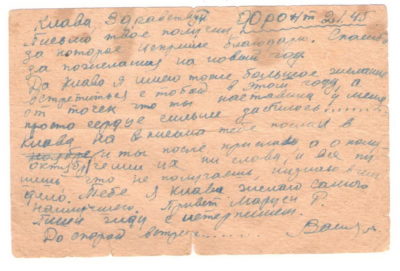 Клава Здравствуй Фронт 2.1.45
Письмо твое получил, Спасибо
за которое искренне благодарю.
за пожелания на новый год.
Да Клава я имею тоже большое желание
встретиться с тобой в этом году, а
от точек что ты наставила у меня
просто сердце сильнее забилось!.......
Клава, на письма тебе
и ты после
октябре или их ни слова, и все пи
шешь что не получаешь,
дело. Тебе я Клава желаю самого
наилучшего. Привет Маруси Р.
Пиши жду с нетерпением.
До скорой встречи...... Василий